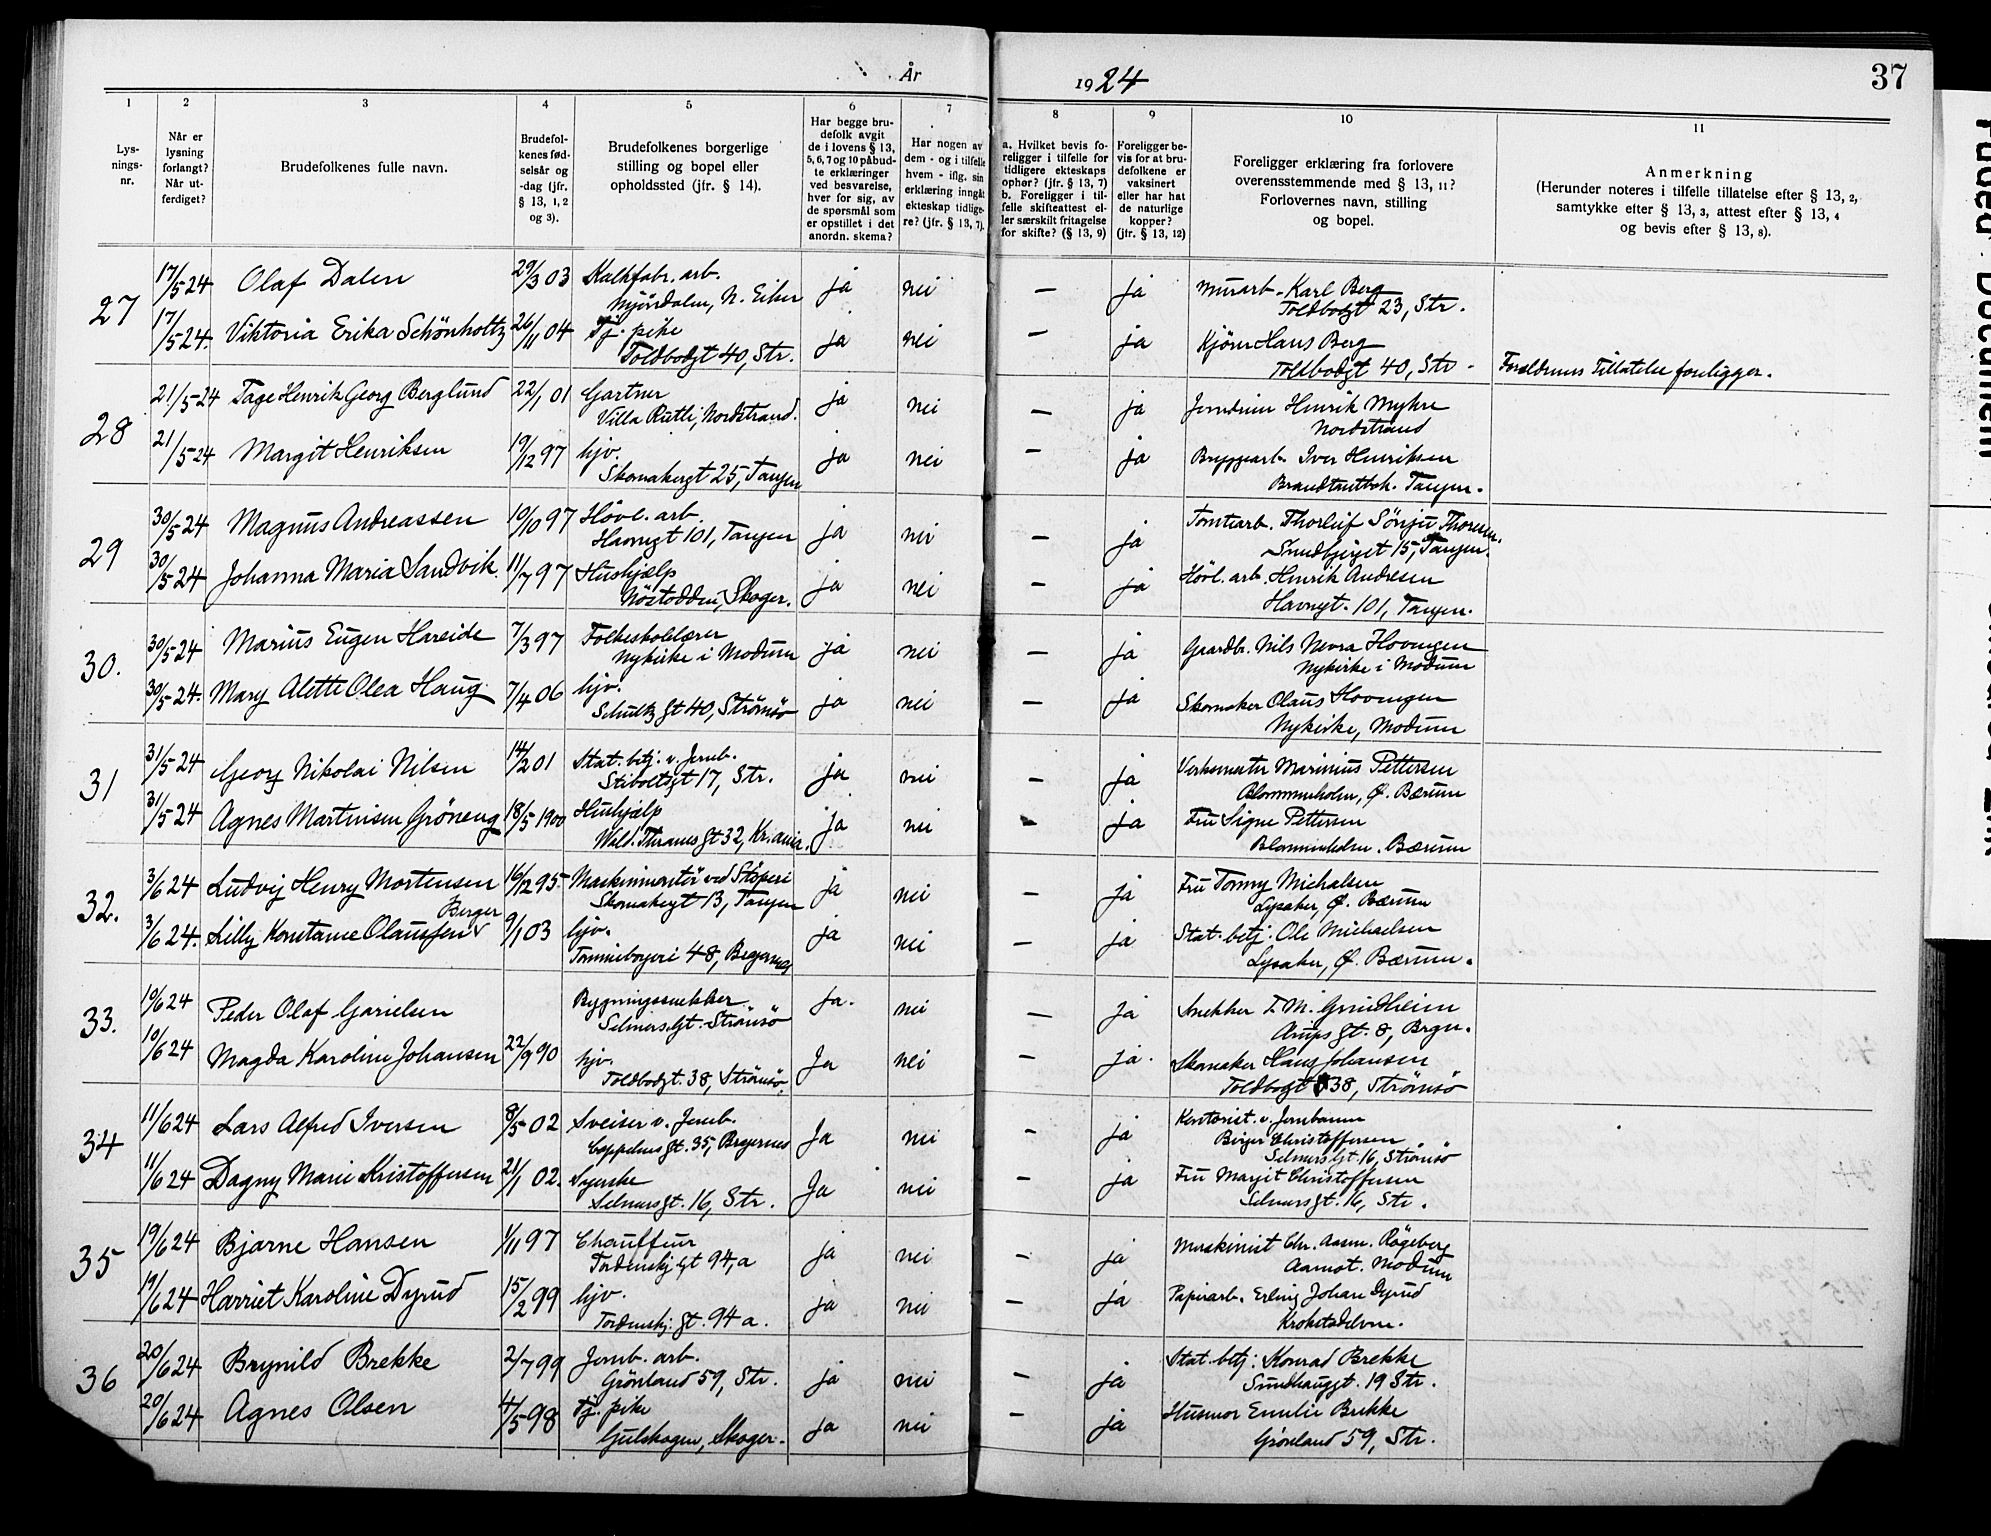 År 1924 37
1 2 3 4 5 6 7 8 9 10 11
Lysnings-nr.
Når er lysning forlangt? Når utferdiget?
Brudefolkenes fulle navn.
Brudefolkenes fødselsår og -dag (jfr. § 13, 1, 2 og 3).
Brudefolkenes borgerlige stilling og bopel eller opholdssted (jfr. § 14).
Har begge brudefolk avgit de i lovens § 13, 5, 6, 7 og 10 påbudte erklæringer ved besvarelse, hver for sig, av de spørsmål som er opstillet i det anordn. skema?
Har nogen av dem - og i tilfelle hvem - iflg. sin erklæring inngåt ekteskap tidligere? (jfr. § 13, 7).
a. Hvilket bevis foreligger i tilfelle for tidligere ekteskaps ophør? (jfr. § 13, 7) b. Foreligger i tilfelle skifteattest eller særskilt fritagelse for skifte? (§ 13, 9)
Foreligger bevis for at brudefolkene er vaksinert eller har hat de naturlige kopper? (jfr. § 13, 12)
Foreligger erklæring fra forlovere overensstemmende med § 13, 11? Forlovernes navn, stilling og bopel.
Anmerkning (Herunder noteres i tilfelle tillatelse efter § 13, 2, samtykke efter § 13, 3, attest efter § 13, 4 og bevis efter § 13, 8).
27 17/5 24 Olaf Dalen 29/3 03 Kalkfabr. arb. ja nei — ja Murarb. Karl Berg
Mjøndalen, N. Eiker Toldbodgt 23, Str.
17/5 24. Viktoria Erika Schönholtz 26/11 04 Tj. pike ja nei — ja Kjörer Hans Berg
Toldbodgt 40, Str. Toldbodgt 40, Str. Forældrenes Tillatelse foreligger.
28 21/5-24 Tage Henrik Georg Berglund 22/1 01 Gartner ja nei — ja Henrik Myhre
Villa Rutli, Nordstrand. Nordstrand
21/5-24 Margit Henriksen 19/12 97 hjv. ja nei — ja Bryggearb. Iver Henriksen
Skomakergt 25, Tangen Tangen.
29 30/5 24 Magnus Andreassen 19/10 97 Hövl. arb. ja nei — ja Tomtearb. Thorleif Sönju Thoresen.
Havnegt 101, Tangen 15, Tangen.
30/5 24 Johanna Maria Sandvik. 11/7 97 Hushjælp ja nei — ja Hövl. arb. Henrik Andresen
Nöstodden, Skoger. Havnegt. 101, Tangen.
30. 30/5 24 Marius Eugen Hareide 7/3 97 Folkeskolelærer ja nei — ja Gaardbr. Nils Hovengen
Nykirke i Modum Nykirke i Modum
30/5-24. Mary Alette Olea Haug. 7/4 06 hjv. ja nei — ja Skomaker Olaus Hovengen
Schultz gt 40, Strömsö Nykirke, Modum
31 31/5 24 Georg Nikolai Nilsen 14/2 01 Stat. betj. v. Jernb. ja nei — ja Verksmester Marinius Pettersen
Stiboltsgt 17, Str. Blommenholm, Ø. Bærum
31/5 24 Agnes Martinsen Gröneng 18/5 1900 Hushjælp ja nei — ja Fru Signe Pettersen
Wald. Thranes gt 32, Kr.ania. Blommenholm. Bærum
32. 3/6 24 Ludvig Henry Mortensen 16/12 95. Maskinmontör ved Stöperi ja nei — ja Fru Tommy Michalsen
Berger Skomakergt 13, Tangen Lysaker, Ø. Bærum
3/6 24. Lilly Konstanse Olaussen 9/1 03 hjv. ja nei — ja Stat. betj. Ole Michaelsen
48, Bragernes Lysaker, Ø. Bærum.
33. 10/6 24 Peder Olaf Garielsen Bygningssnekker ja. nei — ja Snekker
Selmers Gt. Strömsö Arups gt. 8, Brgn.
10/6 24 Magda Karoline Johansen 22/9 90 hjv. Ja nei — ja. Skomaker Hans Johansen
Toldbodgt. 38, Strömsö. Toldbogt 38, Strömsö
34 11/6 24 Lars Alfred Iversen 8/5 02 Sveiser v. Jernb. Ja nei — ja Kontorist. v. Jernbanen
Cappelens gt. 35, Bragernes Birger Christoffersen
Selmers Gt 16, Strömsö
11/6 24 Dagny Marie Kristoffersen 21/1 02. Syerske Ja nei — ja Fru Margit Christoffersen
Selmers gt. 16, Str. Selmers gt. 16, Str.
35 19/6 24 Bjarne Hansen 1/11 97 Chauffeur ja nei — ja Maskinist Chr. Aasm. Rögeberg
Tordenskj. gt 94, a Aamot. Modum
19/6 24 Harriet Karoline Dyrud 15/2 99 hjv. ja nei — ja Papirarb. Erling Johan Dyrud
Tordenskj. gt. 94 a. Krokstadelven.
36 20/6 24 Brynild Brekke 2/7 99 Jernb. arb. ja nei — ja Stat. betj. Konrad Brekke
Grönland 59, Str. Sundhauggt. 19 Str.
20/6 24 Agnes Olsen 4/5 98 Tj. pike ja nei — ja Husmor Emilie Brekke
Gulskogen, Skoger. Grönland 59, Str.